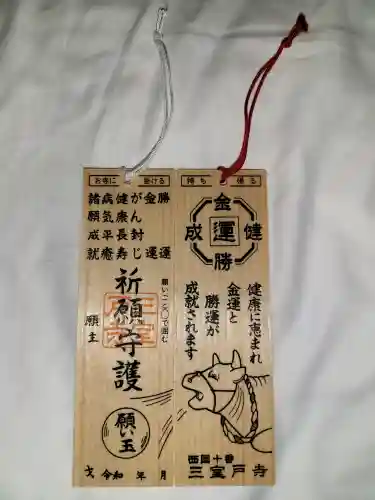 お寺に 掛ける
金運 勝運
がん封じ
健康長寿
病気平癒
諸願成就
祈願守護
願い一つ〇で囲む
願主
願い玉
令和 年 月
持ち 帰る
金
成 運 健
勝
健康に恵まれ
金運と
勝運が
成就されます
西国十番
三室戸寺